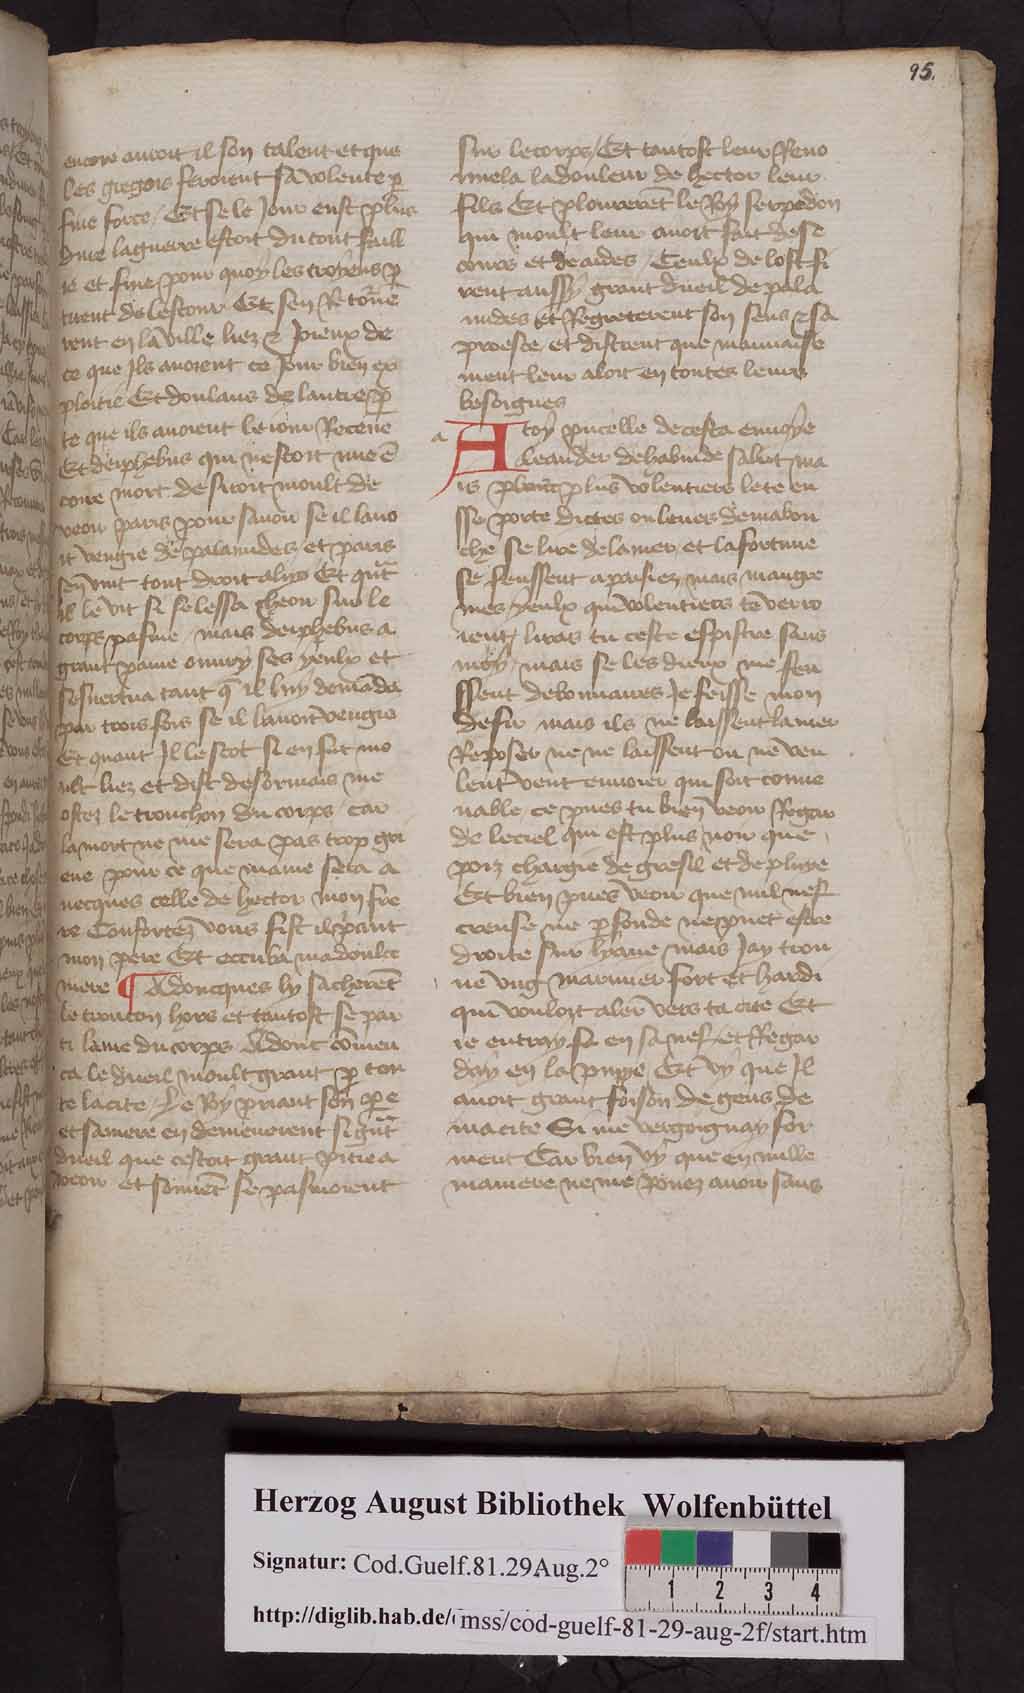 95.
encore auroit il son talent et que
les gregois feroient sa volente p̲
fine force / Et se le Jour eust plus
dure la guerre estoit du tout faill
ie et finee pour quoy les troyens p̲
tirent de lestour Et sen Retorne
rent en la ville liez et Joieux de
ce que Ils auoient ce Jour bien ex
ploitie Et doulans de lautre p̲
te que ils auoient le iour Receue
Et deiphebus qui nestoit mie e͂
core mort desiroit moult de
veoir paris pour sauoir se il lauo
it vengie de palamides et paris
sen vint tout droit a luy Et qu͂t
il le vit si se lessa cheoir sur le
corps pasme / mais deiphebus a
grant paine ouury ses yeulx et
sesuertua tant q̃ il luy demãda
par trois fois se il lauoit vengie
Et quant Il le scot si en fut mo
ult liez et dist desormais me
ostez le tronchon du corps / car
la mort ne me sera pas trop gri
eue pour ce que mame sera a
uecques celle de hector mon fre
re Confortez vous fist il priant
mon pere Et eccuba ma doulce
mere ¶ Adoncques ly sacherẽt
le troncon hors et tantost se par
ti lame du corps Adonc cõmen
ca le dueil moult grant p̲ tou
te la cite / Le Roy priant son pere
et sa mere en demenerent si gñt
dueil que cestoit grant pitie a
veoir et souuẽt se pasmoient
sur le corps / Et tantost leur Reno
uuela la douleur de hector leur
fils Et plourerẽt le Roy serpedon
qui moult leur auoit fait de se
cours et de aides / Ceulx de lost fi
rent aussy grant dueil de pala
mides Et Regreterent son sens et sa
proesce / et distrent que mauuaise
ment leur aloit en toutes leurs
besoignes
a
A toy pucelle de cesta enuoye
leander de habuide salut ma
is plus volentiers le te eu
sse porte dictes ou leues de ma bou
che se lire de la mer et la fortune
se feussent apaisiez / mais maugre
mes yeulx qui volentiers te verro
ient / liras tu ceste espistre sans
moy / mais se les dieux me feu
ssent debonnaires Je feisse mon
desir mais ils ne laissent la mer
Reposer ne ne laissent ou ne veu
lent vent enuoier qui soit conue
nable / ce pues tu bien veoir Regar
de le ciel qui est plus noir que
poiz chargie de gresil et de pluye
Et bien pues veoir que nul nef
creuse ne p̲fonde ne puet estre
droite sur leaue mais Jay trou
ue vng marinier fort et hardi
qui vouloit aler vers ta cite Et
ie entray si en sa nef / et Regar
day en la pruye / Et vy que Il
auoit grant foison de gens de
ma cite Si me vergoignay for
ment Car bien vy que en nulle
maniere ne me pouez auoir sans
Herzog August Bibliothek Wolfenbüttel
Signatur: Cod.Guelf.81.29Aug.2°
http://diglib.hab.de/ mss/cod-guelf-81-29-aug-2f/start.htm
1 2 3 4